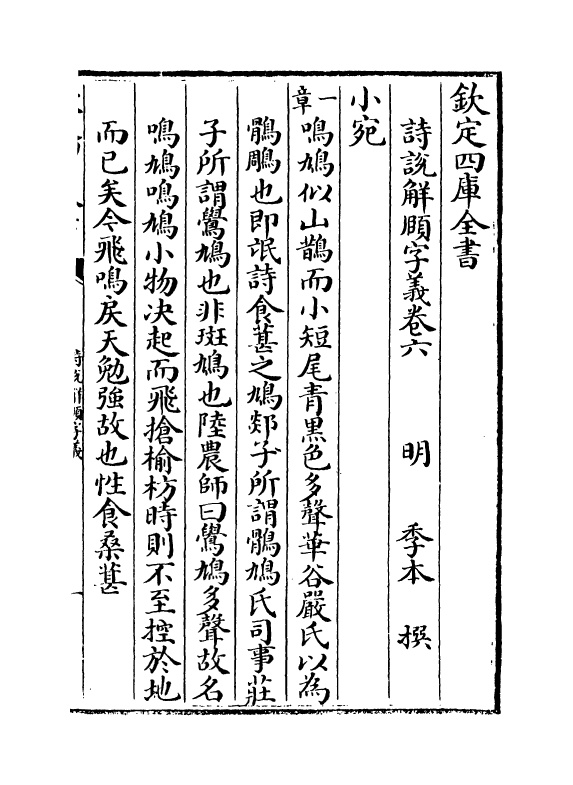 欽定四庫全書
詩說解頤字義卷六 明 季本 撰
小宛
一章鳴鳩似山鵲而小短尾青黒色多聲華谷嚴氏以為
鶻鵰也即氓詩食葚之鳩郯子所謂鶻鳩氏司事莊
子所謂鷽鳩也非斑鳩也陸農師曰鷽鳩多聲故名
鳴鳩鳴鳩小物决起而飛搶榆枋時則不至控於地
而已矣今飛鳴戾天勉強故也性食桑葚
詩說解頤字義